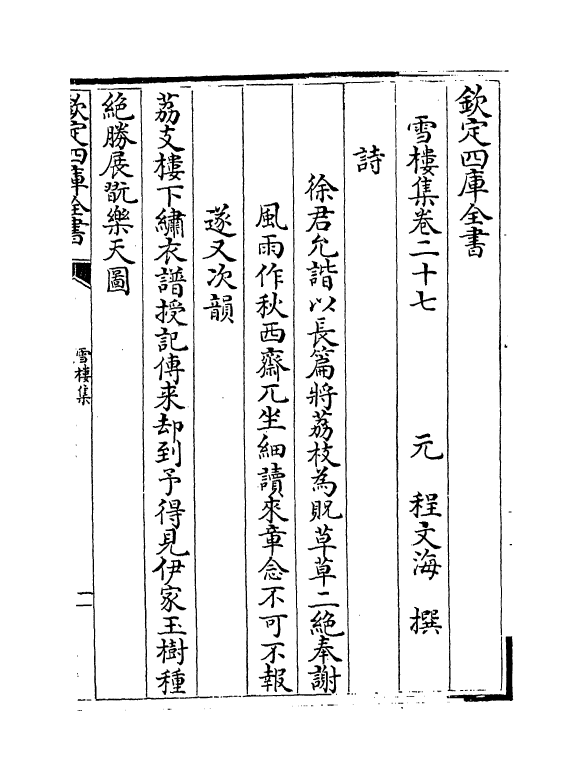 欽定四庫全書
雪樓集卷二十七　元　程文海　撰
詩
徐君允諧以長篇將荔枝為貺草草二絶奉謝
風雨作秋西齋兀坐細讀來章念不可不報
遂又次韻
荔支樓下繡衣譜授記傳来却到予得見伊家玉樹種
絶勝展翫樂天圖
欽定四庫全書
雪樓集
一